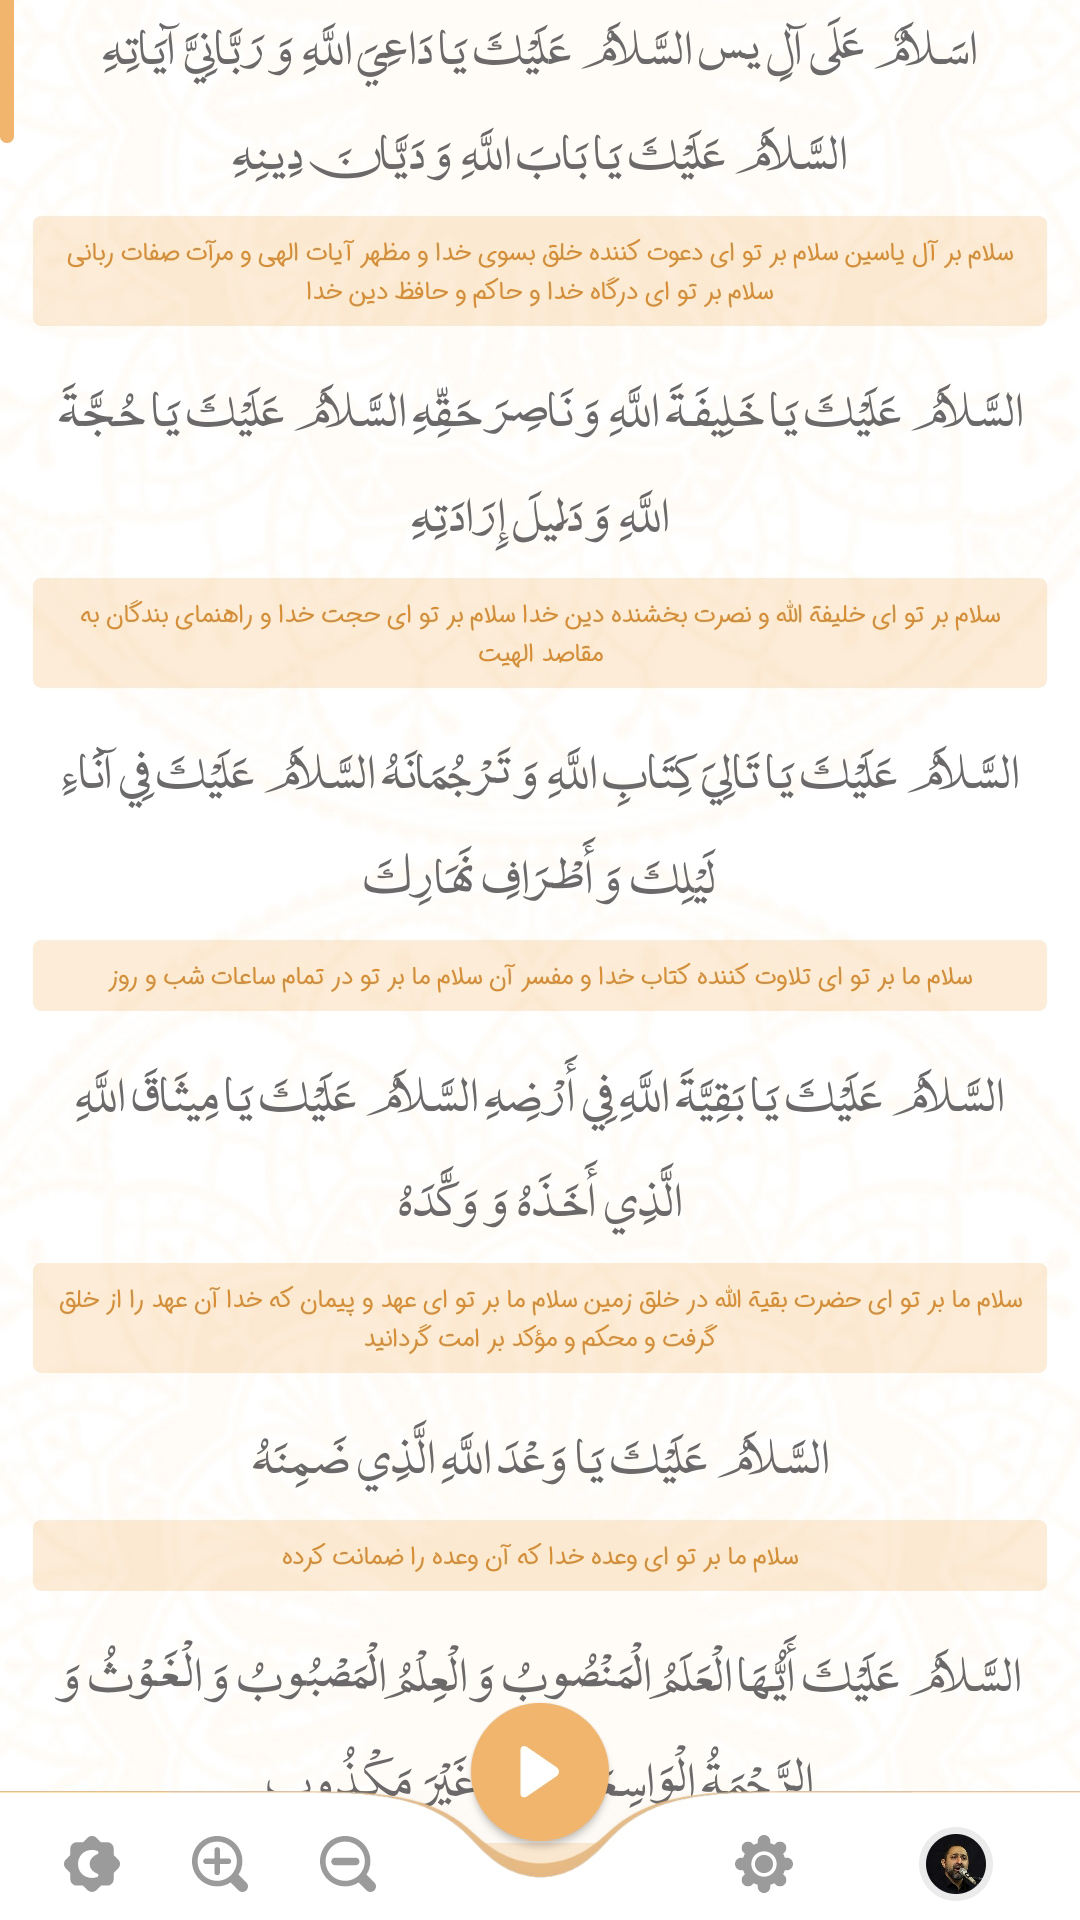 اسَلامٌ عَلَى آلِ يس السَّلامُ عَلَيْكَ يَا دَاعِيَ اللَّهِ وَ رَبَّانِيَّ آيَاتِهِ
السَّلامُ عَلَيْكَ يَا بَابَ اللَّهِ وَ دَيَّانَ دِينِهِ
سلام بر آل یاسین سلام بر تو ای دعوت کننده خلق بسوی خدا و مظهر آیات الهی و مرآت صفات ربانی
سلام بر تو ای درگاه خدا و حاکم و حافظ دین خدا
السَّلامُ عَلَيْكَ يَا خَلِيفَةَ اللَّهِ وَ نَاصِرَ حَقِّهِ السَّلامُ عَلَيْكَ يَا حُجَّةَ
اللَّهِ وَ دَلِيلَ إِرَادَتِهِ
سلام بر تو ای خلیفة الله و نصرت بخشنده دین خدا سلام بر تو ای حجت خدا و راهنمای بندگان به
مقاصد الهیت
السَّلامُ عَلَيْكَ يَا تَالِيَ كِتَابِ اللَّهِ وَ تَرْجُمَانَهُ السَّلامُ عَلَيْكَ فِي آنَاءِ
لَيْلِكَ وَ أَطْرَافِ نَهَارِكَ
سلام ما بر تو ای تلاوت کننده کتاب خدا و مفسر آن سلام ما بر تو در تمام ساعات شب و روز
السَّلامُ عَلَيْكَ يَا بَقِيَّةَ اللَّهِ فِي أَرْضِهِ السَّلامُ عَلَيْكَ يَا مِيثَاقَ اللَّهِ
الَّذِي أَخَذَهُ وَ وَكَّدَهُ
سلام ما بر تو ای حضرت بقیة الله در خلق زمین سلام ما بر تو ای عهد و پیمان که خدا آن عهد را از خلق
گرفت و محکم و مؤکد بر امت گردانید
السَّلامُ عَلَيْكَ يَا وَعْدَ اللَّهِ الَّذِي ضَمِنَهُ
سلام ما بر تو ای وعده خدا که آن وعده را ضمانت کرده
السَّلامُ عَلَيْكَ أَيُّهَا الْعَلَمُ الْمَنْصُوبُ وَ الْعِلْمُ الْمَصْبُوبُ وَ الْغَوْثُ وَ
الرَّحْمَةُ غَيْرَ مَكْذُوبٍ